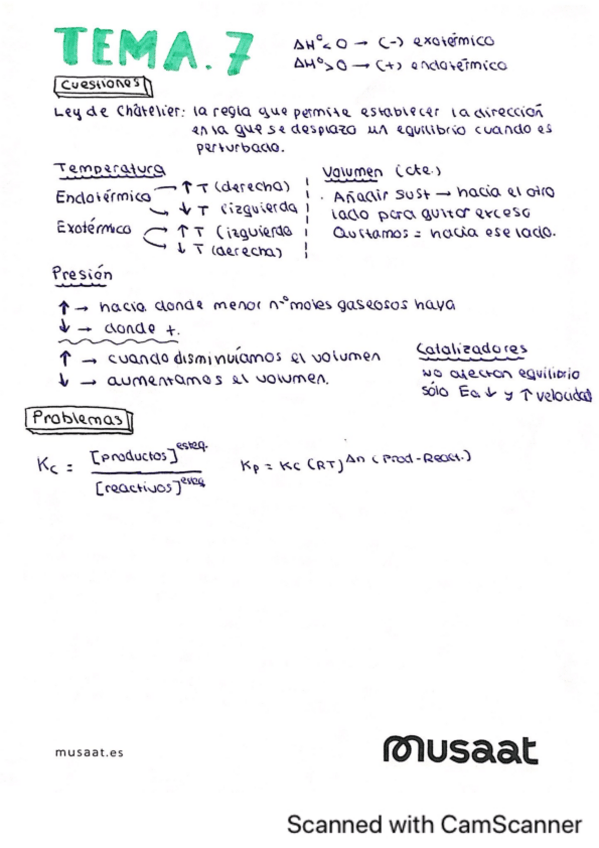 TEMA.7
ΔHº<0 → (-) exotérmico
ΔHº>0 → (+) endotérmico
Cuestiones
Ley de Châtelier: la regla que permite establecer la dirección
en la que se desplaza un equilibrio cuando es
perturbado.
Temperatura
Endotérmico → ↑ T (derecha)
→ ↓ T (izquierda
Exotérmico → ↑ T (izquierda
→ ↓ T (derecha)
Volumen (cte.)
· Añadir sust → hacia el otro
lado para quitar exceso
Quitamos = hacia ese lado.
Presión
↑ → hacia donde menor nº moles gaseosos haya
↓ → donde +.
↑ → cuando disminuíamos el volumen
↓ → aumentamos el volumen.
Catalizadores
no afectan equilibrio
sólo Ea ↓ y ↑ velocidad
Problemas
Kc = [productos]^esteq. / [reactivos]^esteq
Kp = Kc (RT)^Δn (Prod-React.)
musaat.es
musaat
Scanned with CamScanner